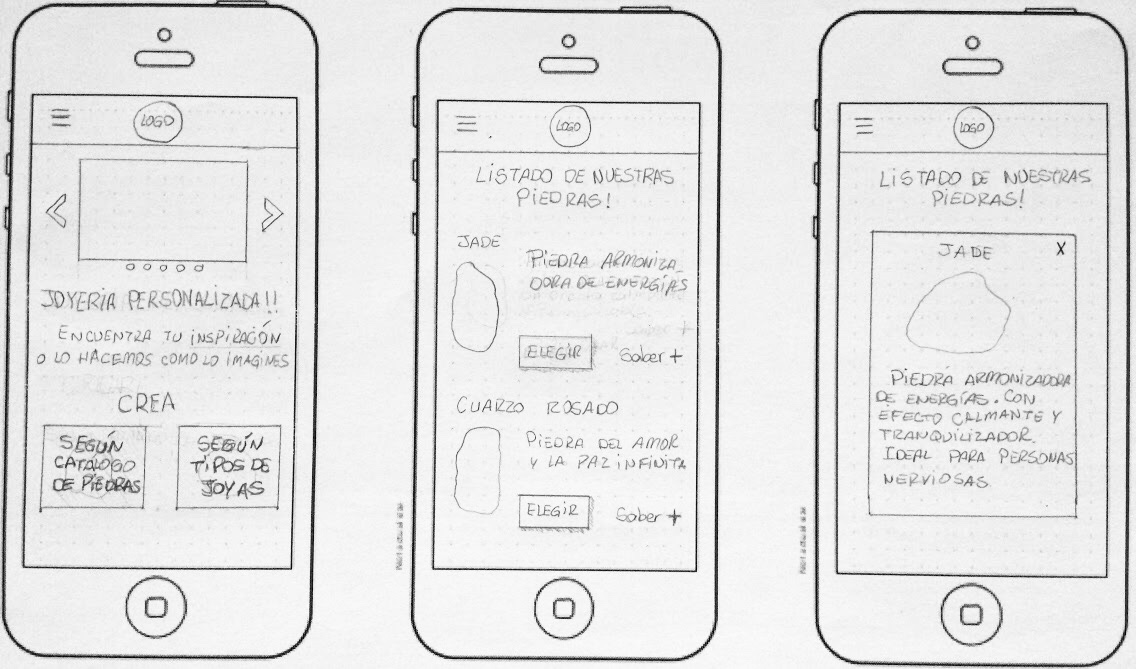 LOGO
JOYERIA PERSONALIZADA!!
ENCUENTRA TU INSPIRACIÓN
O LO HACEMOS COMO LO IMAGINES
CREA
SEGÚN
CATALOGO
DE PIEDRAS
SEGÚN
TIPOS DE
JOYAS
LOGO
LISTADO DE NUESTRAS
PIEDRAS!
JADE
PIEDRA ARMONIZA_
DORA DE ENERGÍAS
ELEGIR
Saber +
CUARZO ROSADO
PIEDRA DEL AMOR
Y LA PAZ INFINITA
ELEGIR
Saber +
LOGO
LISTADO DE NUESTRAS
PIEDRAS!
JADE
X
PIEDRA ARMONIZADORA
DE ENERGÍAS. CON
EFECTO CALMANTE Y
TRANQUILIZADOR.
IDEAL PARA PERSONAS
NERVIOSAS